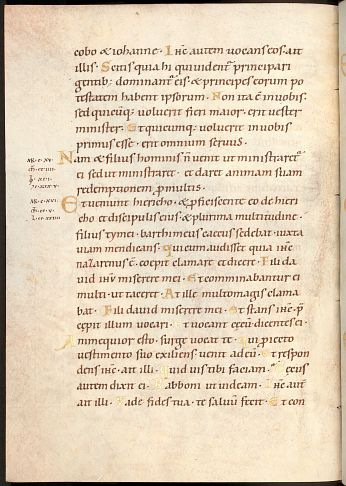 cobo & iohanne. Ihc autem uocans eos. ait
illis. Scitis quia hi qui uident' principari
gentib; dominant' eis. & principes eorum po
testatem habent ipsorum. Non ita ē in uobis.
sed quicuq; uoluerit fieri maior. erit uester
minister. Et quicumq; uoluerit in uobis
primus esse. erit omnium seruus.
Nam & filius hominis n̄ uenit ut ministraret'
ei sed ut ministraret. et daret animam suam
redemptionem p multis.
Et ueniunt hiericho. & pficiscente eo de hieri
cho et discipulis eius & plurima multitudine.
filius tymei. barthimeus caecus sedebat iuxta
uiam mendicans. Qui cum audisset quia ihc
nazarenus ē. coepit clamare et dicere. Fili da
uid ihu miserere mei. Et comminabantur ei
multi. ut taceret. At ille multo magis clama
bat. Fili dauid miserere mei. Et stans ihc p̄
cepit illum uocari. Et uocant cecū dicentes ei.
Animequior esto. surge uocat te. Qui piecto
uestimento suo exiliens uenit ad eū. Et respon
dens ihc. ait illi. Quid uis tibi faciam. Cecus
autem dixit ei. Rabboni ut uideam. Ihc aut
ait illi. Uade. fides tua. te saluū fecit. Et con